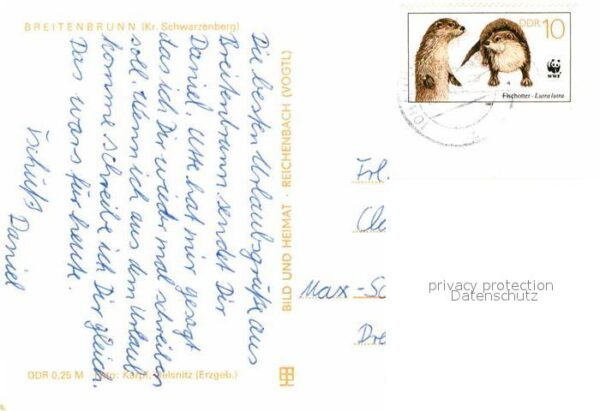 BREITENBRUNN (Kr. Schwarzenberg)
Die besten Urlaubsgrüße aus
Breitenbrunn sendet Dir
Daniel. Ute hat mir gesagt
das ich Dir wieder mal schreiben
soll. Wenn ich aus dem Urlaub
komme schreibe ich Dir gleich.
Das wars für heute.
Tschüß Daniel
DDR 0,25 M Foto: Karpf, Oelsnitz (Erzgeb.)
BILD UND HEIMAT · REICHENBACH (VOGTL)
DDR 10
WWF
Fischotter · Lutra lutra
Frl.
Cla
Max-Sc
Dre
privacy protection
Datenschutz